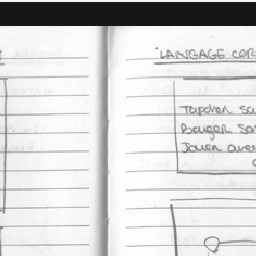 LANGAGE COR
Tapoter sa
Bouger Son
Jouer avec